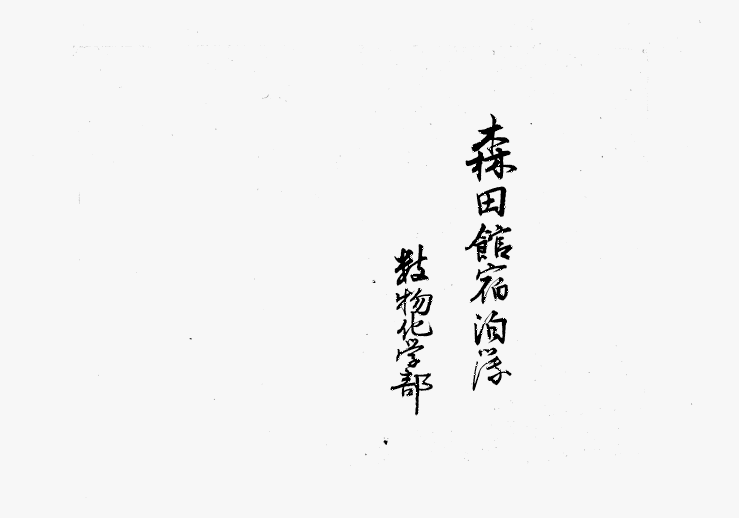 森田館宿泊簿
数物化学部